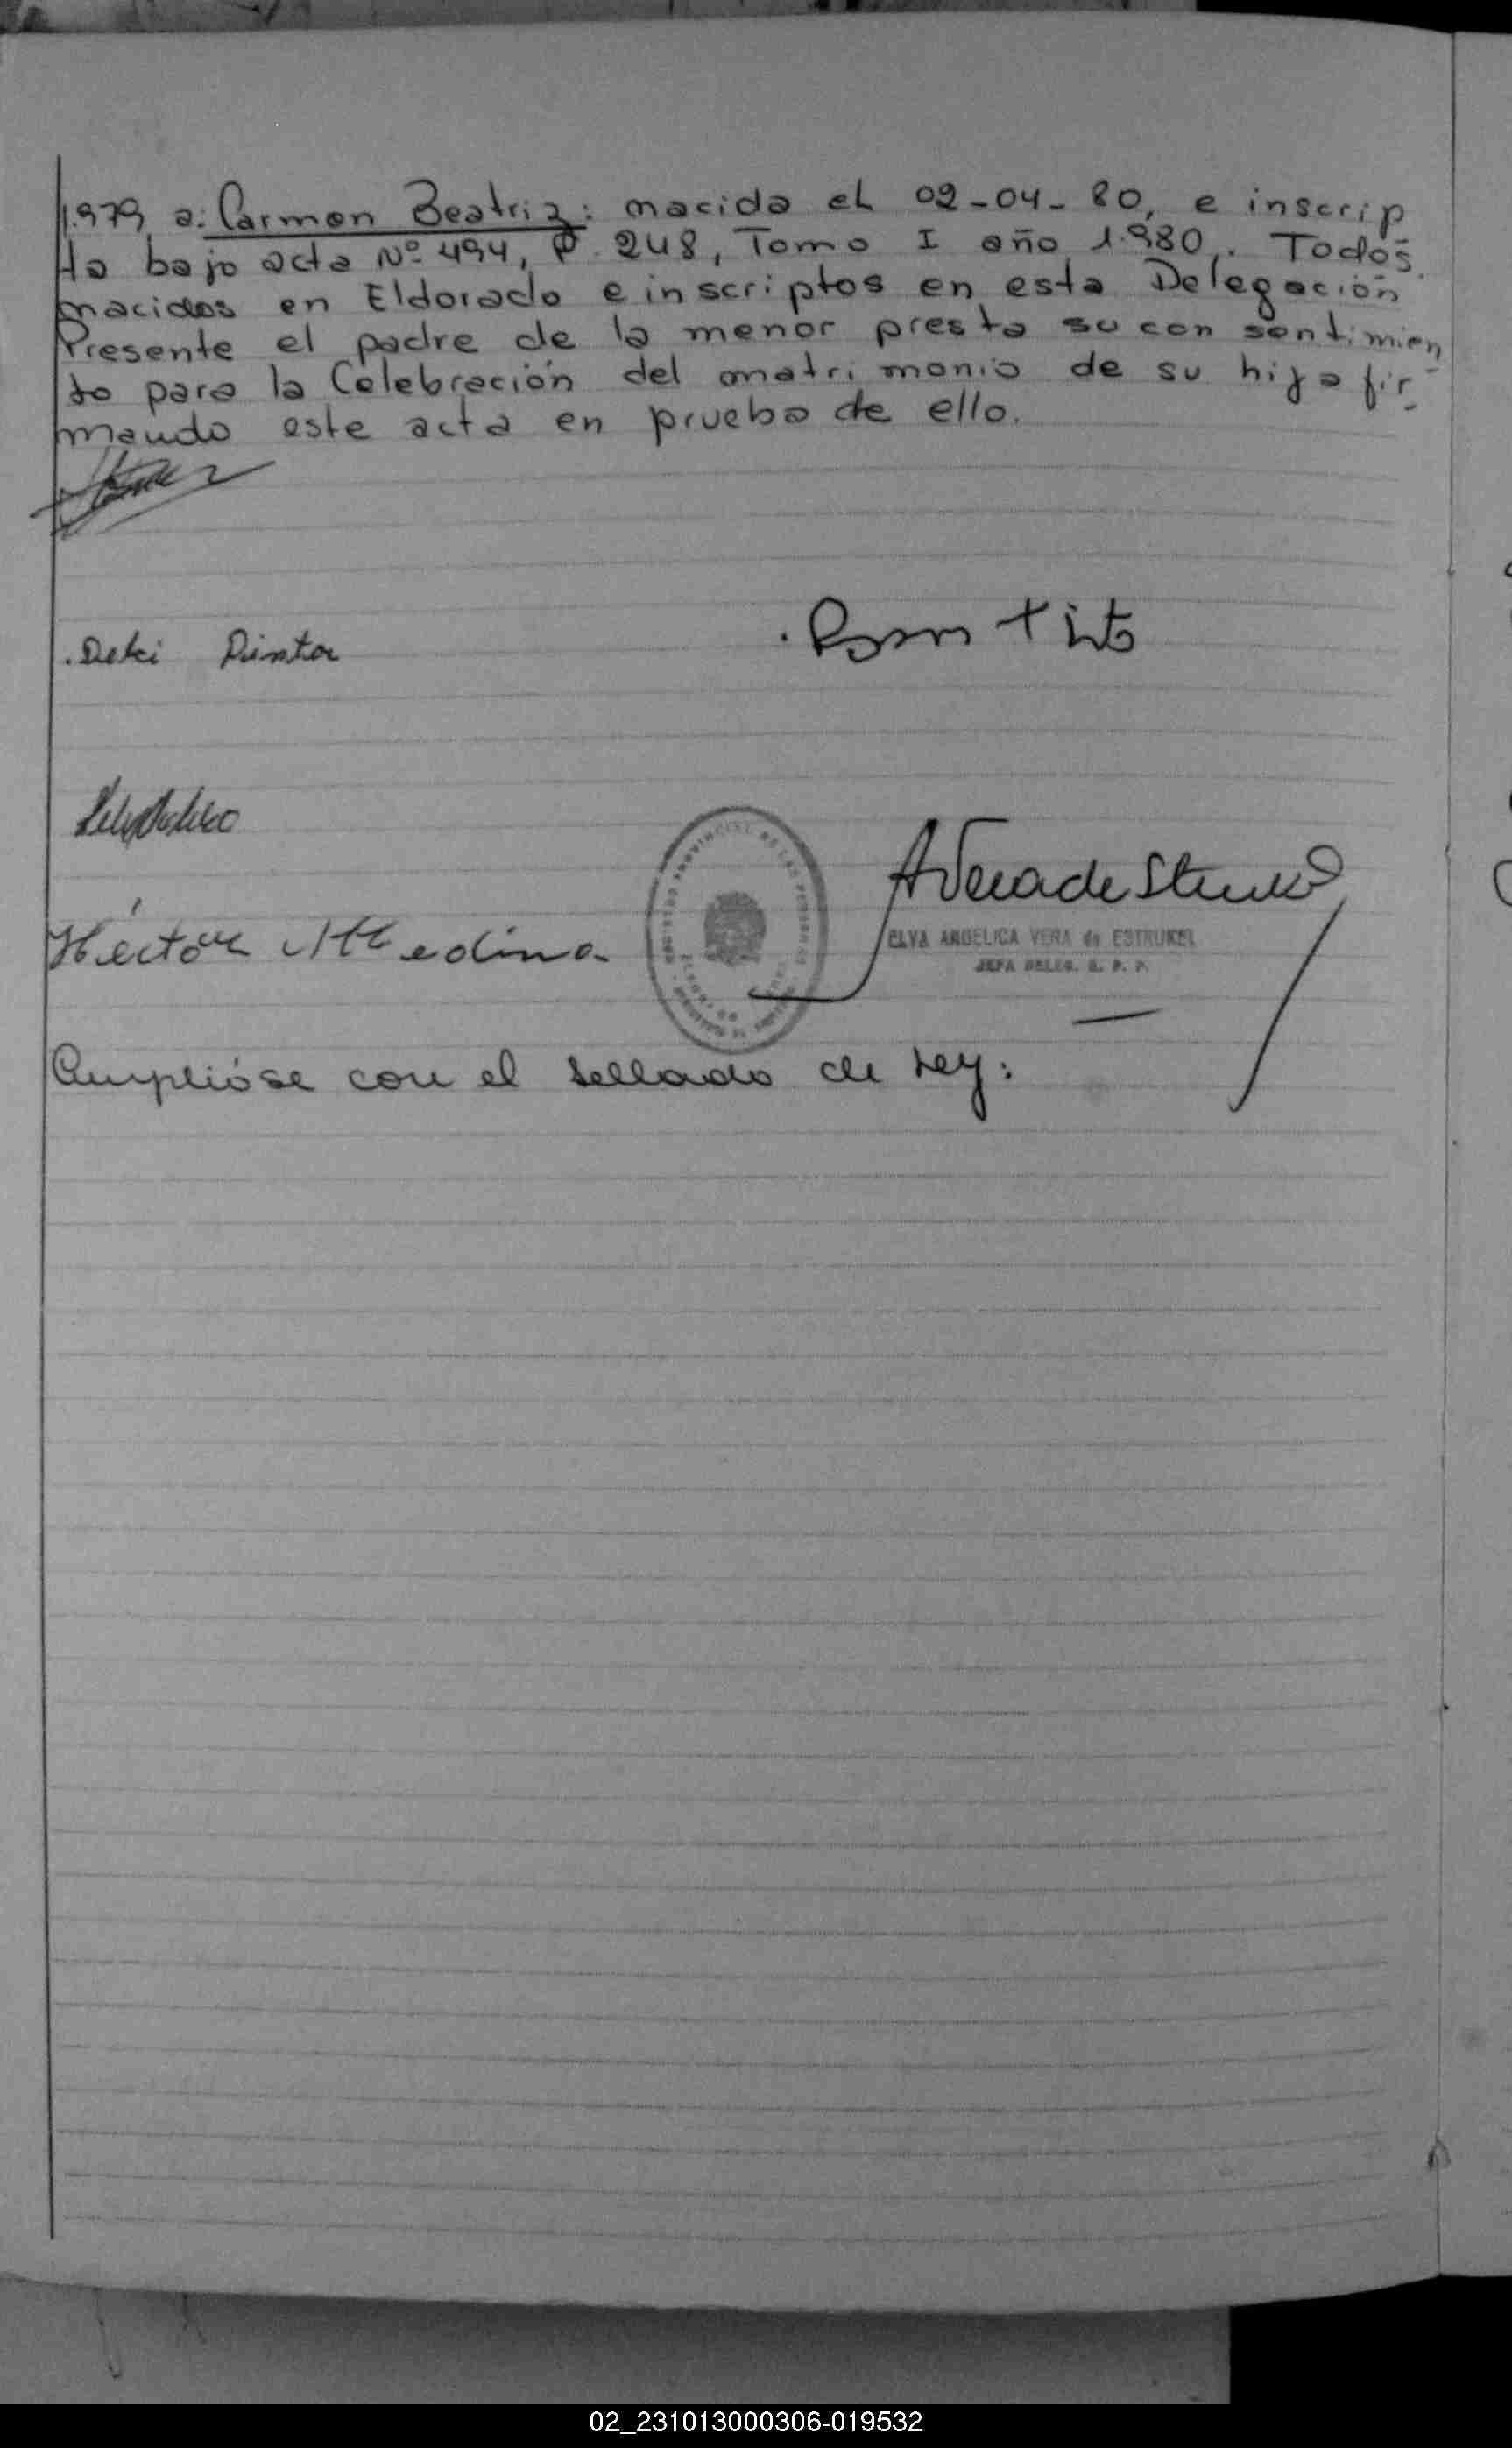 1.979, a: Carmen Beatriz: nacida el 02-04-80, e inscrip
ta bajo acta Nº 494, F. 248, Tomo I año 1.980,. Todos
nacidos en Eldorado e inscriptos en esta Delegación
Presente el padre de la menor presta su consentimien
to para la Celebración del matrimonio de su hija fir-
mando este acta en prueba de ello.
Héctor Medina
A Vera de
ELVA ANGELICA VERA de ESTRUKEL
JEFA DELEG. R. P. P.
Cumplióse con el sellado de Ley:
02_231013000306-019532